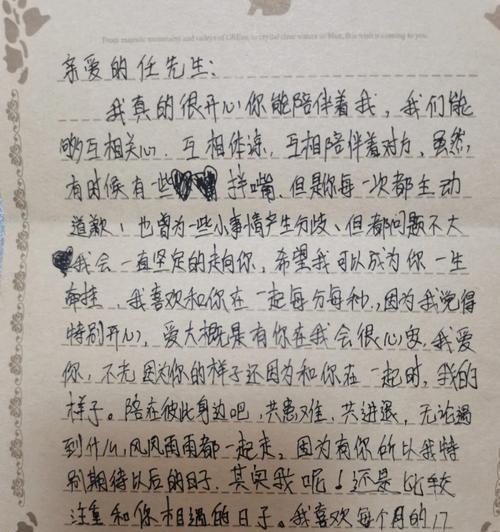 From majestic mountains and valleys of Green, to crystal clear waters so blue, this wish is coming to you.
亲爱的任先生:
我真的很开心你能陪伴着我,我们能
够互相关心、互相体谅,互相陪伴着对方,虽然,
有时候有一些拌嘴,但是你每一次都主动
道歉!也曾为一些小事情产生分歧、但都问题不大
我会一直坚定的走向你,希望我可以成为你一生
牵挂,我喜欢和你在一起每分每秒,因为我觉得
特别开心,爱大概是有你在我会很心安,我爱
你,不光因为你的样子还因为和你在一起时,我的
样子。陪在彼此身边吧,共患难,共进退,无论遇
到什么,风风雨雨都一起走,因为有你所以我特
别期待以后的日子.其实我呢!还是比较
注重和你相遇的日子。我喜欢每个月的17